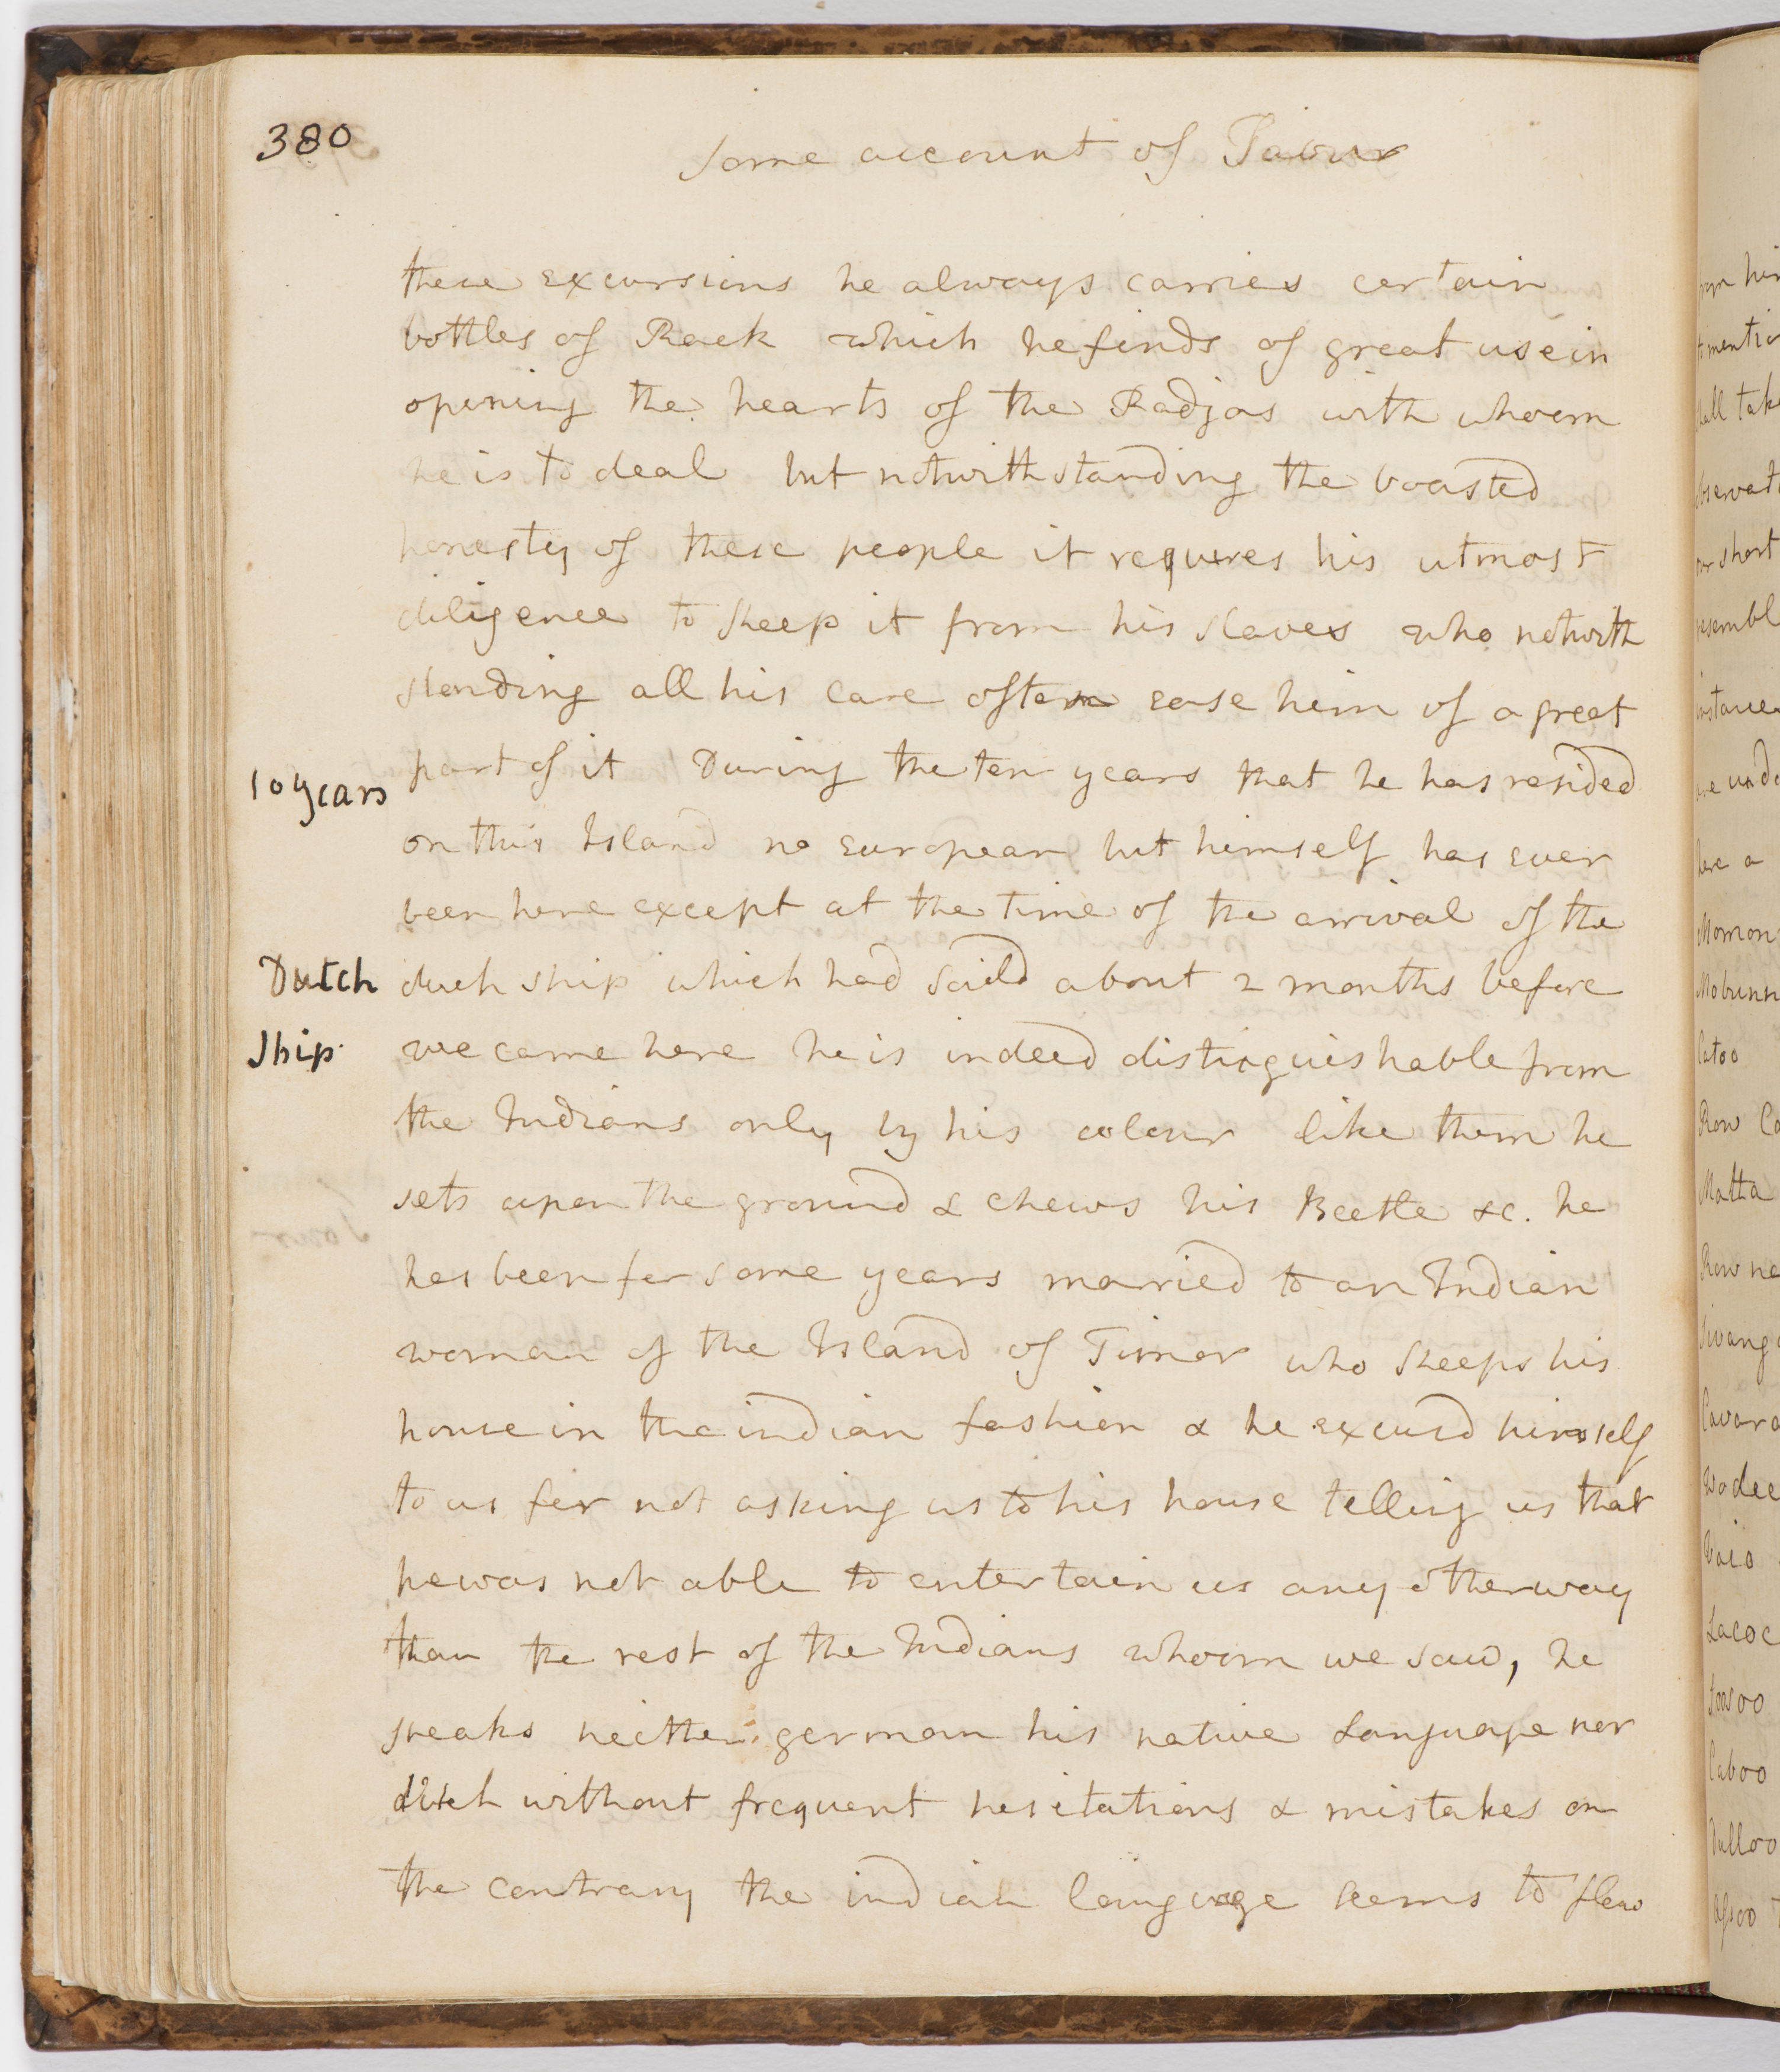 380
Some account of Savu
these excursions he always carries certain
bottles of Rack which he finds of great use in
opening the hearts of the Radjas with whoom
he is to deal but notwithstanding the boasted
honesty of these people it requires his utmost
diligence to keep it from his slaves who notwith
standing all his care often ease him of a great
10 years
part of it During the ten years that he has resided
on this Island no european but himself has ever
been here except at the time of the arrival of the
Dutch
duch ship which had saild about 2 months before
Ship
we came here he is indeed distinguishable from
the Indians only by his colour like them he
sets upon the ground & chews his Beetle &c. he
has been for some years married to an Indian
woman of the Island of Timor who keeps his
house in the indian fashion & he excusd himself
to us for not asking us to his house telling us that
he was not able to entertain us any other way
than the rest of the Indians whoom we saw, he
speaks neither german his native Language nor
dutch without frequent hesitations & mistakes on
the contrary the indian language seems to flow
from him
to mention
shall take
observat
our short
resembl
instance
are unde
here a
Momon
Mobunn
Catoo
Row Ca
Matta
Row na
Sivanga
Cavara
Wodee
Vaio
Lacoc
Soosoo
Caboo
Dulloo
Assoo T